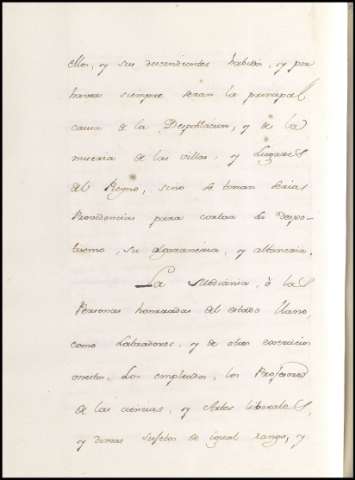 ellos, y sus descendientes habidos, y por
haver siempre seran la principal
causa de la Despoblacion, y de la
miseria de las villas, y Lugares
del Reyno, sino se toman serias
Providencias para cortar su despo-
tismo, su altanería.
La Mediania, ò las
Personas honrradas del estado llano,
como Labradores, y de otros exercicios
onestos, Los empleados, los Profesores
de las ciencias, y Artes liberales,
y demas sujetos de igual rango, y